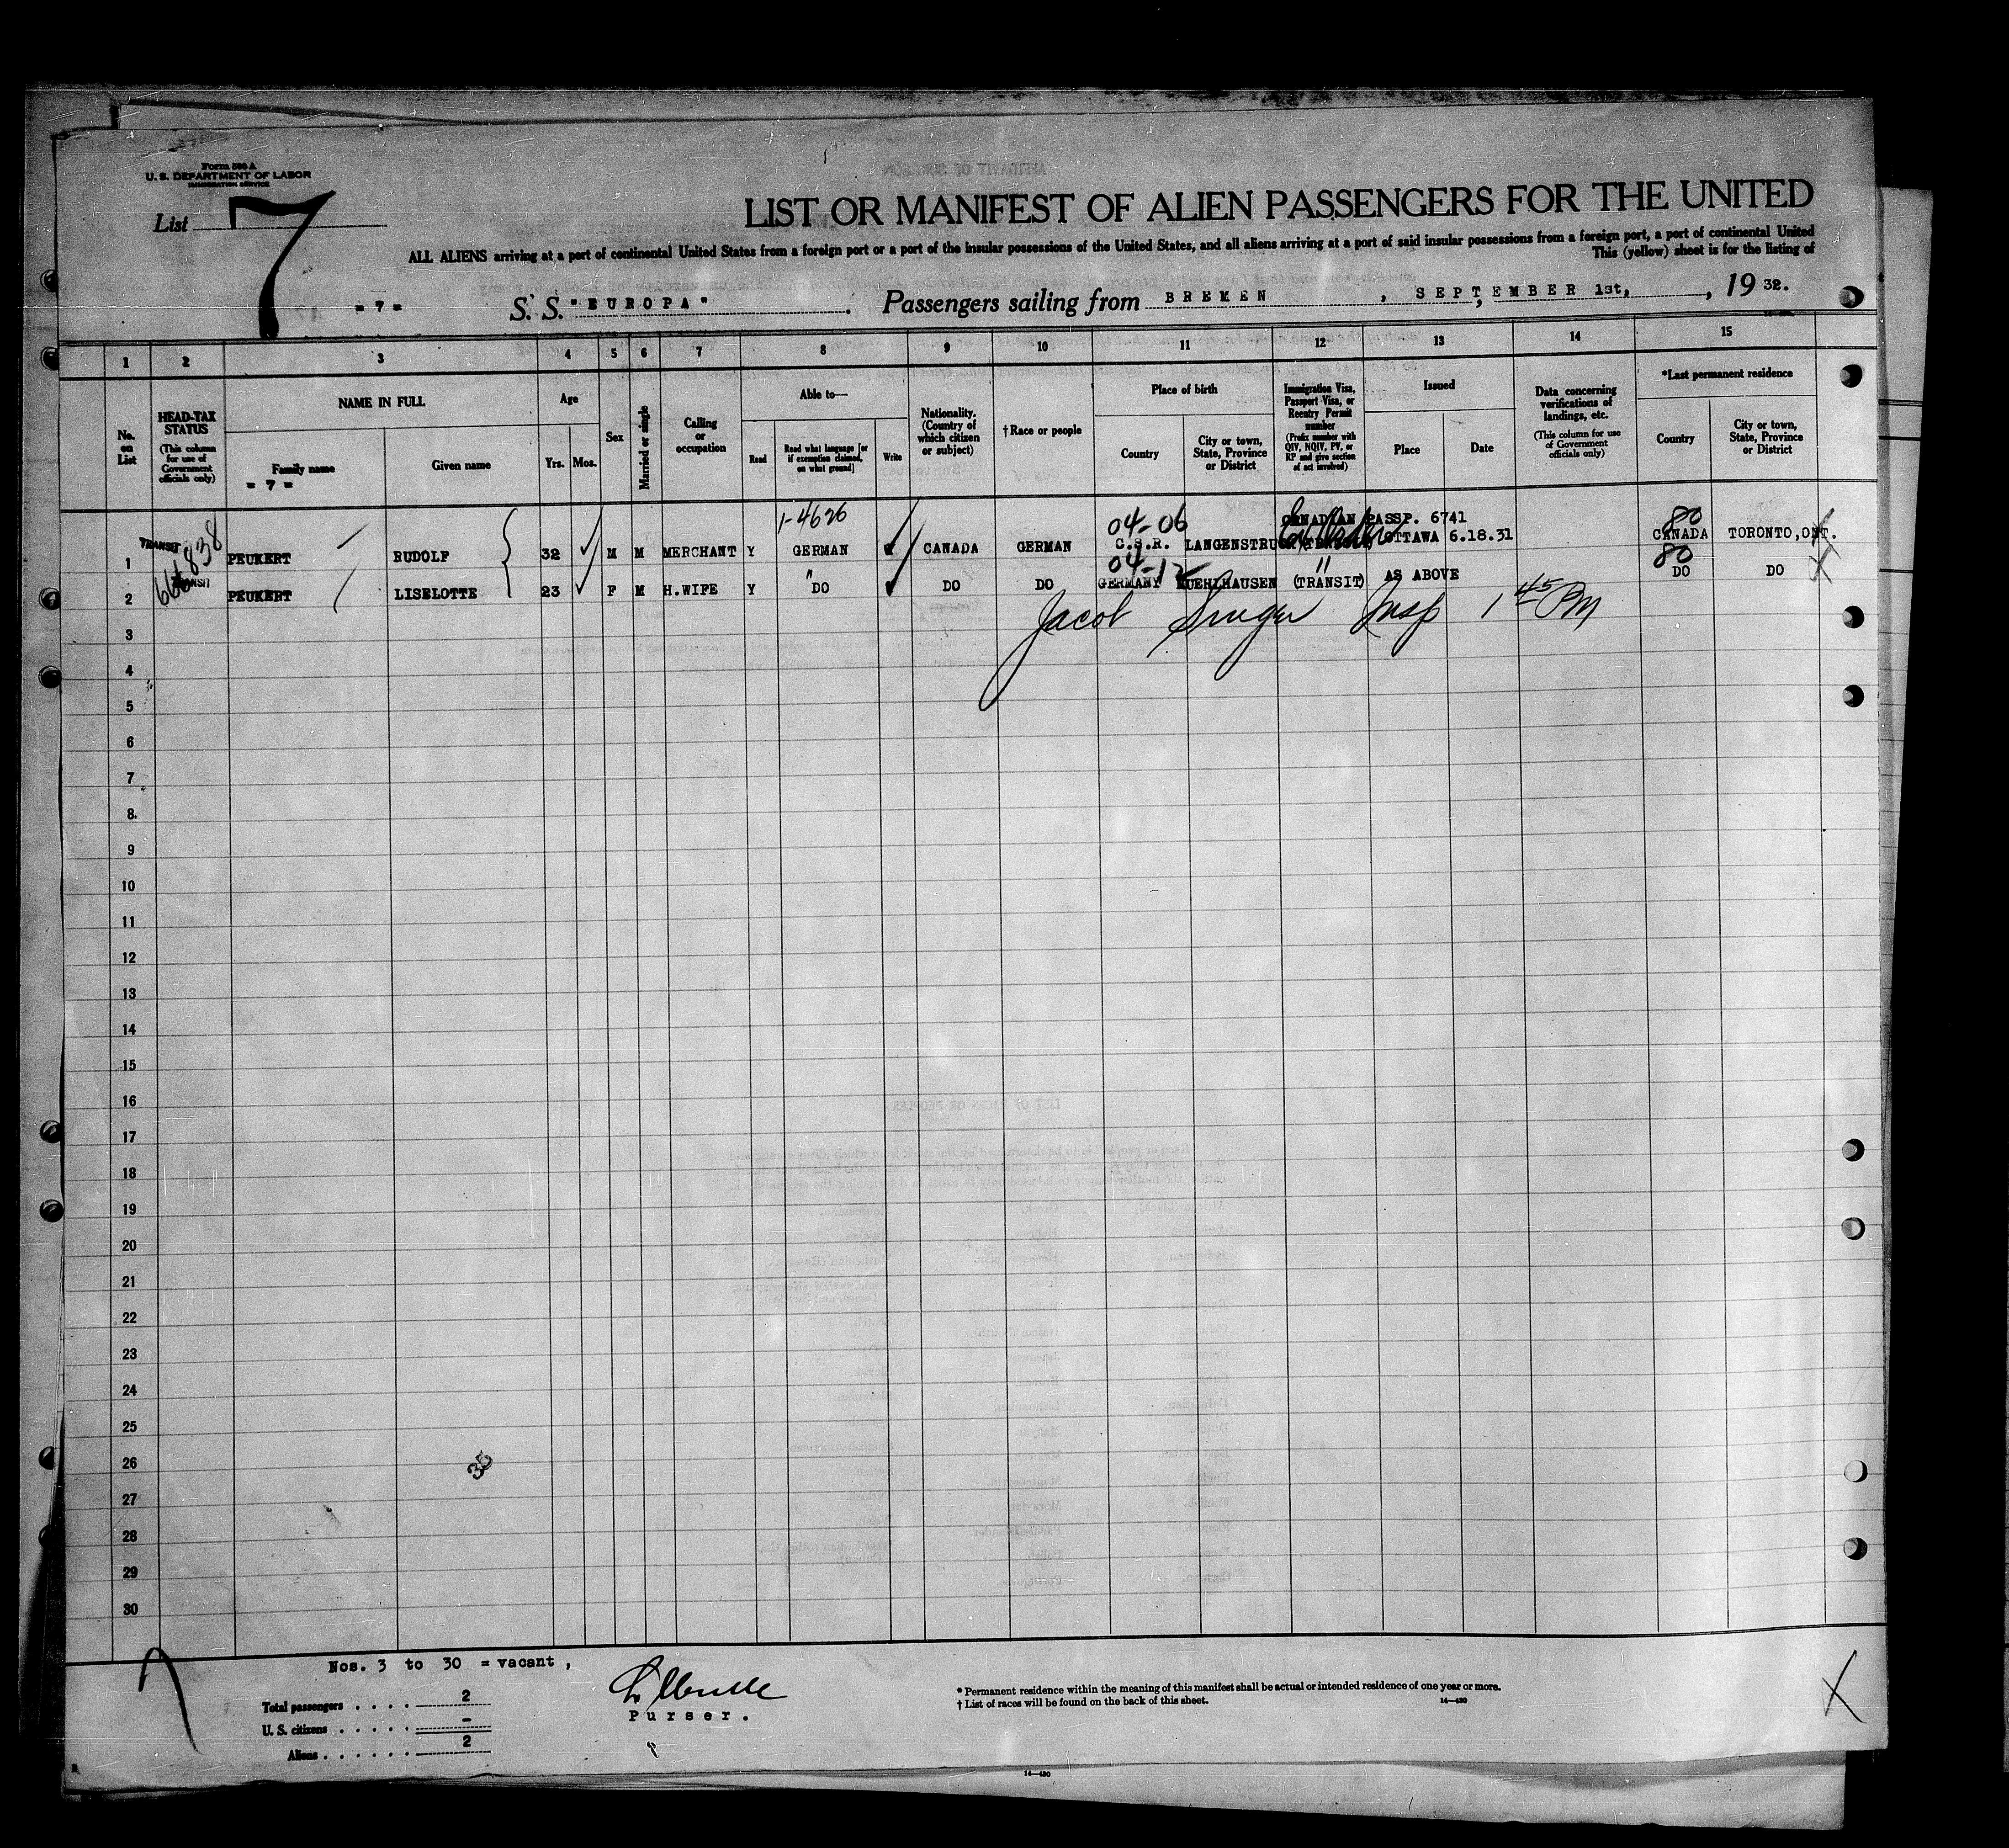 Form 500 A
U. S. DEPARTMENT OF LABOR
IMMIGRATION SERVICE
List 7
LIST OR MANIFEST OF ALIEN PASSENGERS FOR THE UNITED
ALL ALIENS arriving at a port of continental United States from a foreign port or a port of the insular possessions of the United States, and all aliens arriving at a port of said insular possessions from a foreign port, a port of continental United
This (yellow) sheet is for the listing of
= 7 = S. S. "EUROPA". Passengers sailing from BREMEN, SEPTEMBER 1st, , 19 32.
1 2 3 4 5 6 7 8 9 10 11 12 13 14 15
No. on List
HEAD-TAX STATUS
(This column for use of Government officials only)
NAME IN FULL
Family name
= 7 =
Given name
Age
Yrs. Mos.
Sex
Married or single
Calling or occupation
Able to—
Read
Read what language [or if exemption claimed, on what ground]
Write
Nationality. (Country of which citizen or subject)
† Race or people
Place of birth
Country
City or town, State, Province or District
Immigration Visa, Passport Visa, or Reentry Permit number
(Prefix number with QIV, NQIV, PV, or RP and give section of act involved)
Issued
Place
Date
Data concerning verifications of landings, etc.
(This column for use of Government officials only)
*Last permanent residence
Country
City or town, State, Province or District
1-4626 04-06 CANADIAN PASSP. 6741 80
1 TRANSIT PEUKERT RUDOLF 32 M M MERCHANT Y GERMAN CANADA GERMAN C.S.R. OTTAWA 6.18.31 CANADA TORONTO,ONT.
666838
04-12 " 80
2 TRANSIT PEUKERT LISELOTTE 23 F M H.WIFE Y " DO DO DO GERMANY MUEHLHAUSEN (TRANSIT) AS ABOVE DO DO
Jacob Singer Insp 1 45 PM
3
4
5
6
7
8
9
10
11
12
13
14
15
16
17
18
19
20
21
22
23
24
25
26
35
27
28
29
30
Nos. 3 to 30 = vacant,
Total passengers . . . . 2
U. S. citizens . . . . . –
Aliens . . . . . . 2
Purser.
* Permanent residence within the meaning of this manifest shall be actual or intended residence of one year or more.
† List of races will be found on the back of this sheet.
14—430
14—430